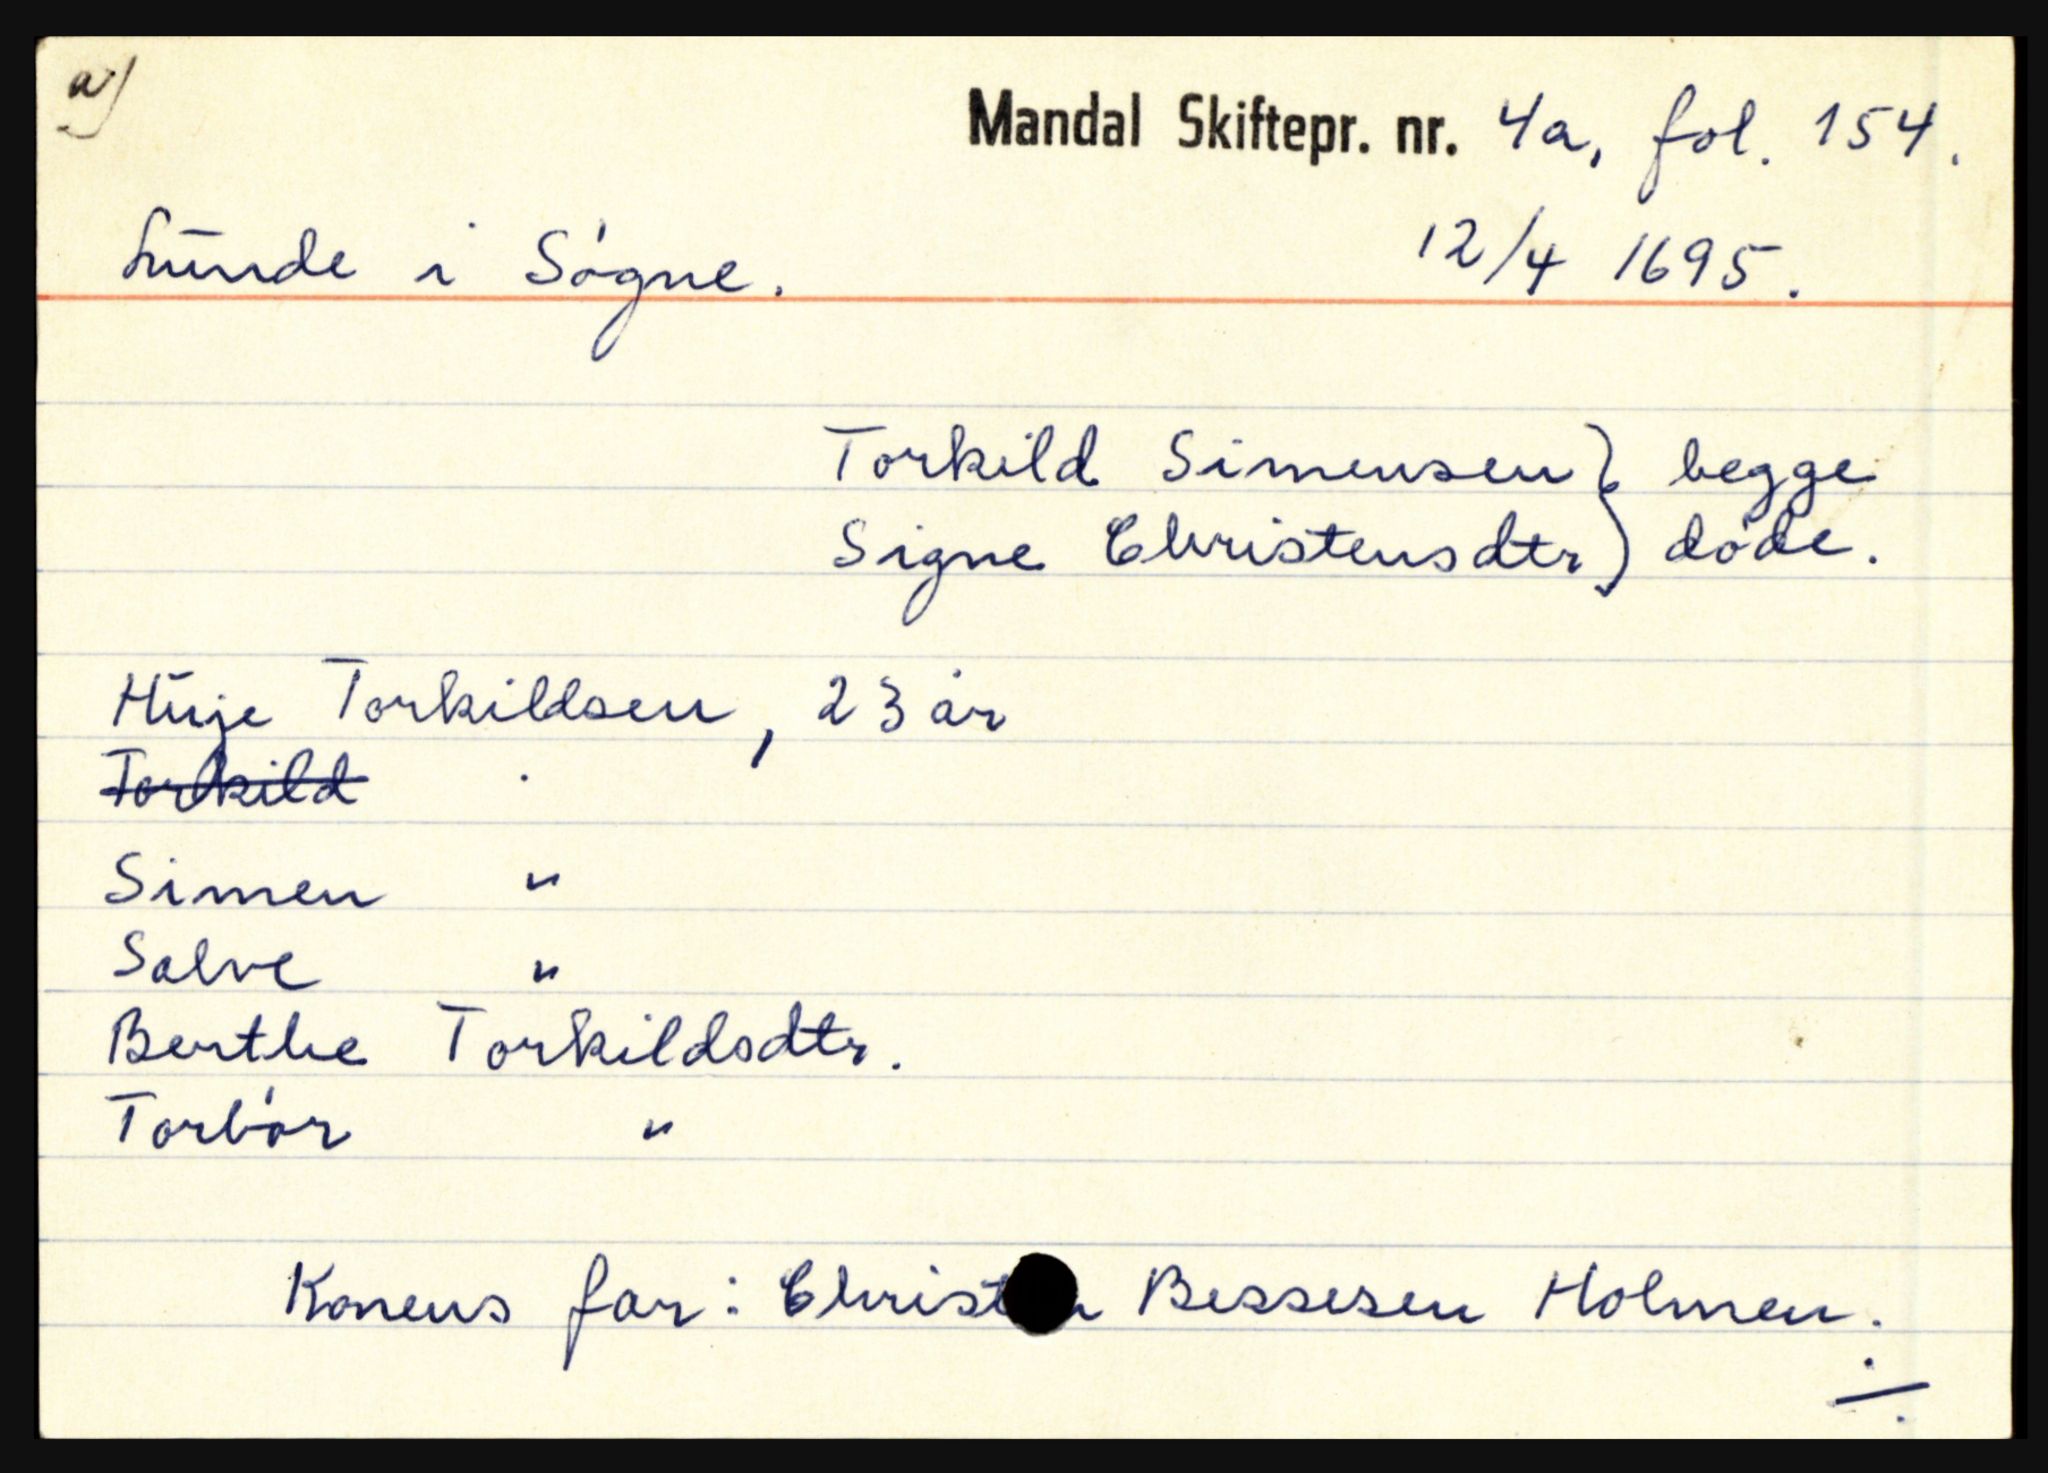 a)
Mandal Skiftepr. nr. 4a, fol. 154.
Lunde i Søgne. 12/4 1695.
Torkild Simensen } begge
Signe Christensdtr } døde.
Huje Torkildsen, 23 år
Torkild
Simen "
Salve "
Berthe Torkildsdtr.
Torbor "
Konens far: Christen Bessesen Holmen.